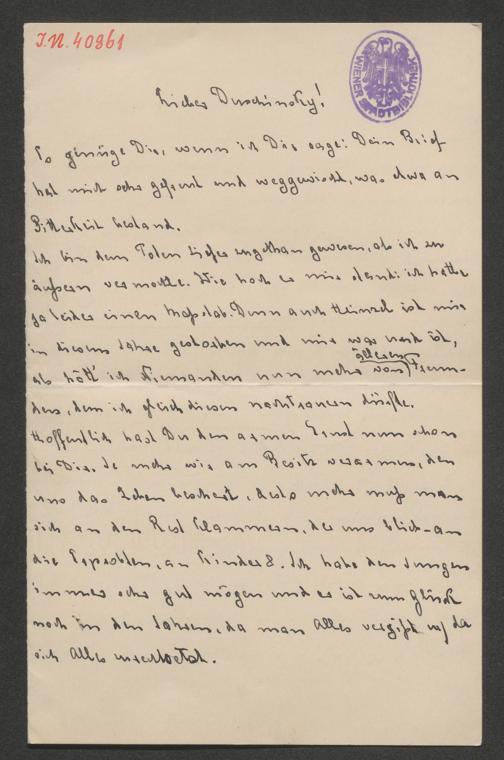 J.N. 40861
WIENER STADTBIBLIOTHEK
Lieber Duschinsky!
Es genüge Dir, wenn ich Dir sage: Dein Brief
hat mich sehr gefreut und weggewischt, was etwa an
Bitterkeit bestand.
Ich bin dem Toten tiefer zugethan gewesen, als ich zu
äußern vermochte. Wie hoch er mir stand: ich hatte
ja leider einen Maßstab. Denn auch Heinzel ist mir
in diesem Jahre gestorben und mir war nach ihm,
als hätt' ich Niemanden nun mehr von älteren Freun-
den, dem ich gleich diesem nachtrauern dürfte.
Hoffentlich hast Du den armen Ernst nun schon
bei Dir. Je mehr wir am Besitz verarmen, den
uns das Leben beschert, desto mehr muß man
sich an den Rest klammern, der uns blieb – an
die Erprobten, an Kinder. Ich habe den Jungen
immer sehr gut mögen und er ist zum Glück
noch in den Jahren, da man Alles vergißt und da
sich Alles